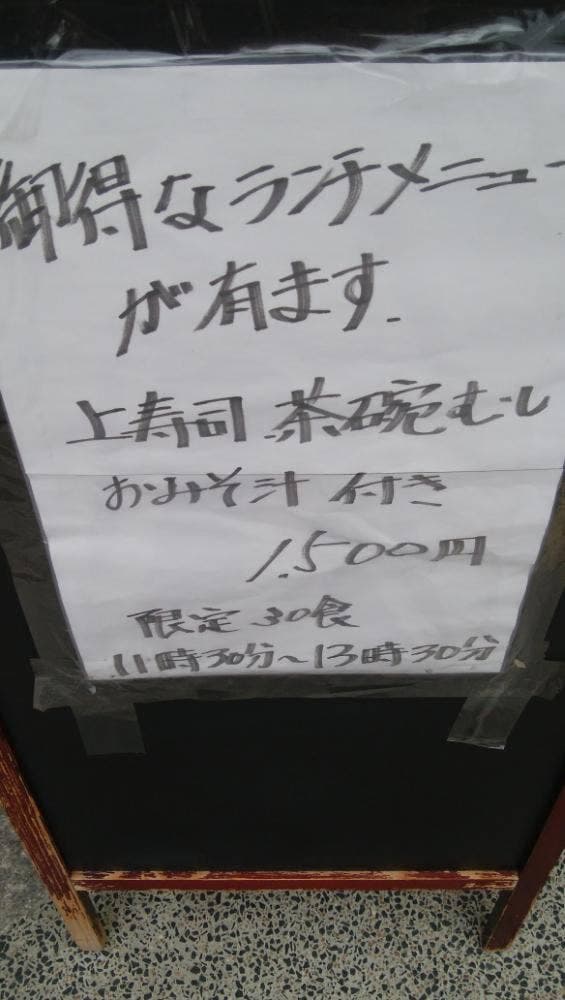 御得なランチメニュー
が有ます.
上寿司 茶碗むし
おみそ汁 付き
1.500円
限定 30食
11時30分~13時30分